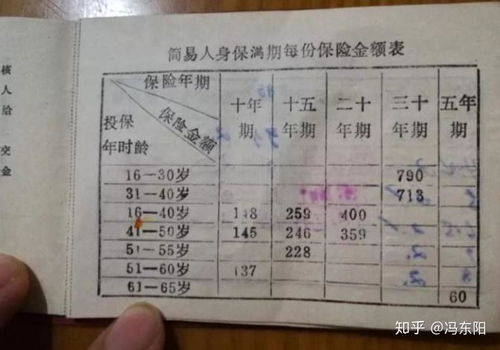 简易人身保满期每份保险金额表
保险年期
保险金额
投保
年时龄
十年期
十五年期
二十年期
三十年期
五年期
16—30岁 790
31—40岁 713
16—40岁 148 259 400
41—50岁 145 246 359
51—55岁 228
51—60岁 137
61—65岁 60
核
人
给
交
金
知乎 @冯东阳